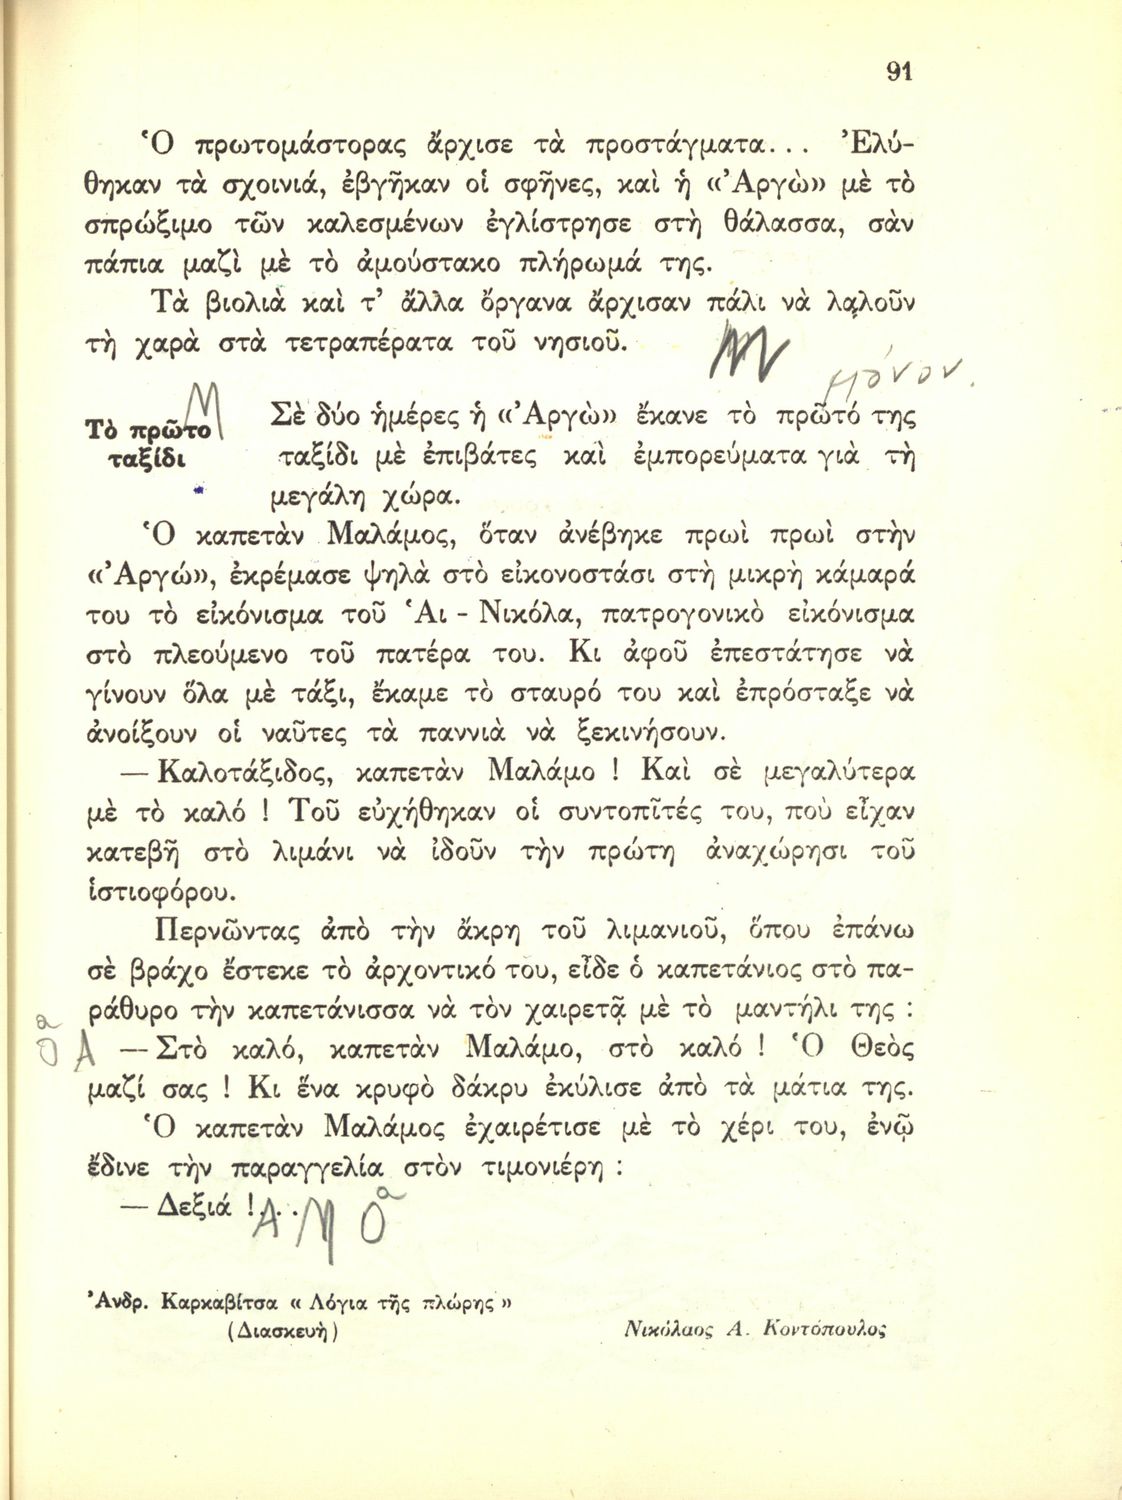 91
Ὁ πρωτομάστορας ἄρχισε τὰ προστάγματα... Ἐλύ-
θηκαν τὰ σχοινιά, ἐβγῆκαν οἱ σφῆνες, καὶ ἡ «Ἀργὼ» μὲ τὸ
σπρώξιμο τῶν καλεσμένων ἐγλίστρησε στὴ θάλασσα, σὰν
πάπια μαζὶ μὲ τὸ ἀμούστακο πλήρωμά της.
Τὰ βιολιὰ καὶ τ' ἄλλα ὄργανα ἄρχισαν πάλι νὰ λαλοῦν
τὴ χαρὰ στὰ τετραπέρατα τοῦ νησιοῦ.
μόνον.
Τὸ πρῶτο
ταξίδι
Σὲ δύο ἡμέρες ἡ «Ἀργὼ» ἔκανε τὸ πρῶτό της
ταξίδι μὲ ἐπιβάτες καὶ ἐμπορεύματα γιὰ τὴ
μεγάλη χώρα.
Ὁ καπετὰν Μαλάμος, ὅταν ἀνέβηκε πρωὶ πρωὶ στὴν
«Ἀργώ», ἐκρέμασε ψηλὰ στὸ εἰκονοστάσι στὴ μικρὴ κάμαρά
του τὸ εἰκόνισμα τοῦ Ἁι - Νικόλα, πατρογονικὸ εἰκόνισμα
στὸ πλεούμενο τοῦ πατέρα του. Κι ἀφοῦ ἐπεστάτησε νὰ
γίνουν ὅλα μὲ τάξι, ἔκαμε τὸ σταυρό του καὶ ἐπρόσταξε νὰ
ἀνοίξουν οἱ ναῦτες τὰ παννιὰ νὰ ξεκινήσουν.
— Καλοτάξιδος, καπετὰν Μαλάμο ! Καὶ σὲ μεγαλύτερα
μὲ τὸ καλό ! Τοῦ εὐχήθηκαν οἱ συντοπῖτές του, ποὺ εἶχαν
κατεβῆ στὸ λιμάνι νὰ ἰδοῦν τὴν πρώτη ἀναχώρησι τοῦ
ἱστιοφόρου.
Περνῶντας ἀπὸ τὴν ἄκρη τοῦ λιμανιοῦ, ὅπου ἐπάνω
σὲ βράχο ἔστεκε τὸ ἀρχοντικό του, εἶδε ὁ καπετάνιος στὸ πα-
ράθυρο τὴν καπετάνισσα νὰ τὸν χαιρετᾷ μὲ τὸ μαντήλι της :
— Στὸ καλό, καπετὰν Μαλάμο, στὸ καλό ! Ὁ Θεὸς
μαζί σας ! Κι ἕνα κρυφὸ δάκρυ ἐκύλισε ἀπὸ τὰ μάτια της.
Ὁ καπετὰν Μαλάμος ἐχαιρέτισε μὲ τὸ χέρι του, ἐνῷ
ἔδινε τὴν παραγγελία στὸν τιμονιέρη :
— Δεξιά !...
Ἀνδρ. Καρκαβίτσα « Λόγια τῆς πλώρης »
(Διασκευὴ)
Νικόλαος Α. Κοντόπουλος